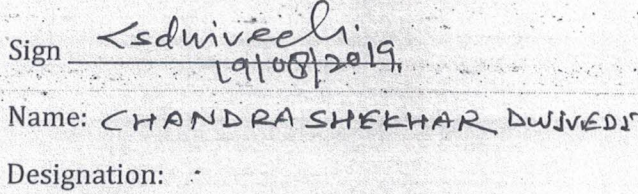 Sign Csdwivedi
19/08/2019
Name: CHANDRA SHEKHAR DWIVEDI
Designation: